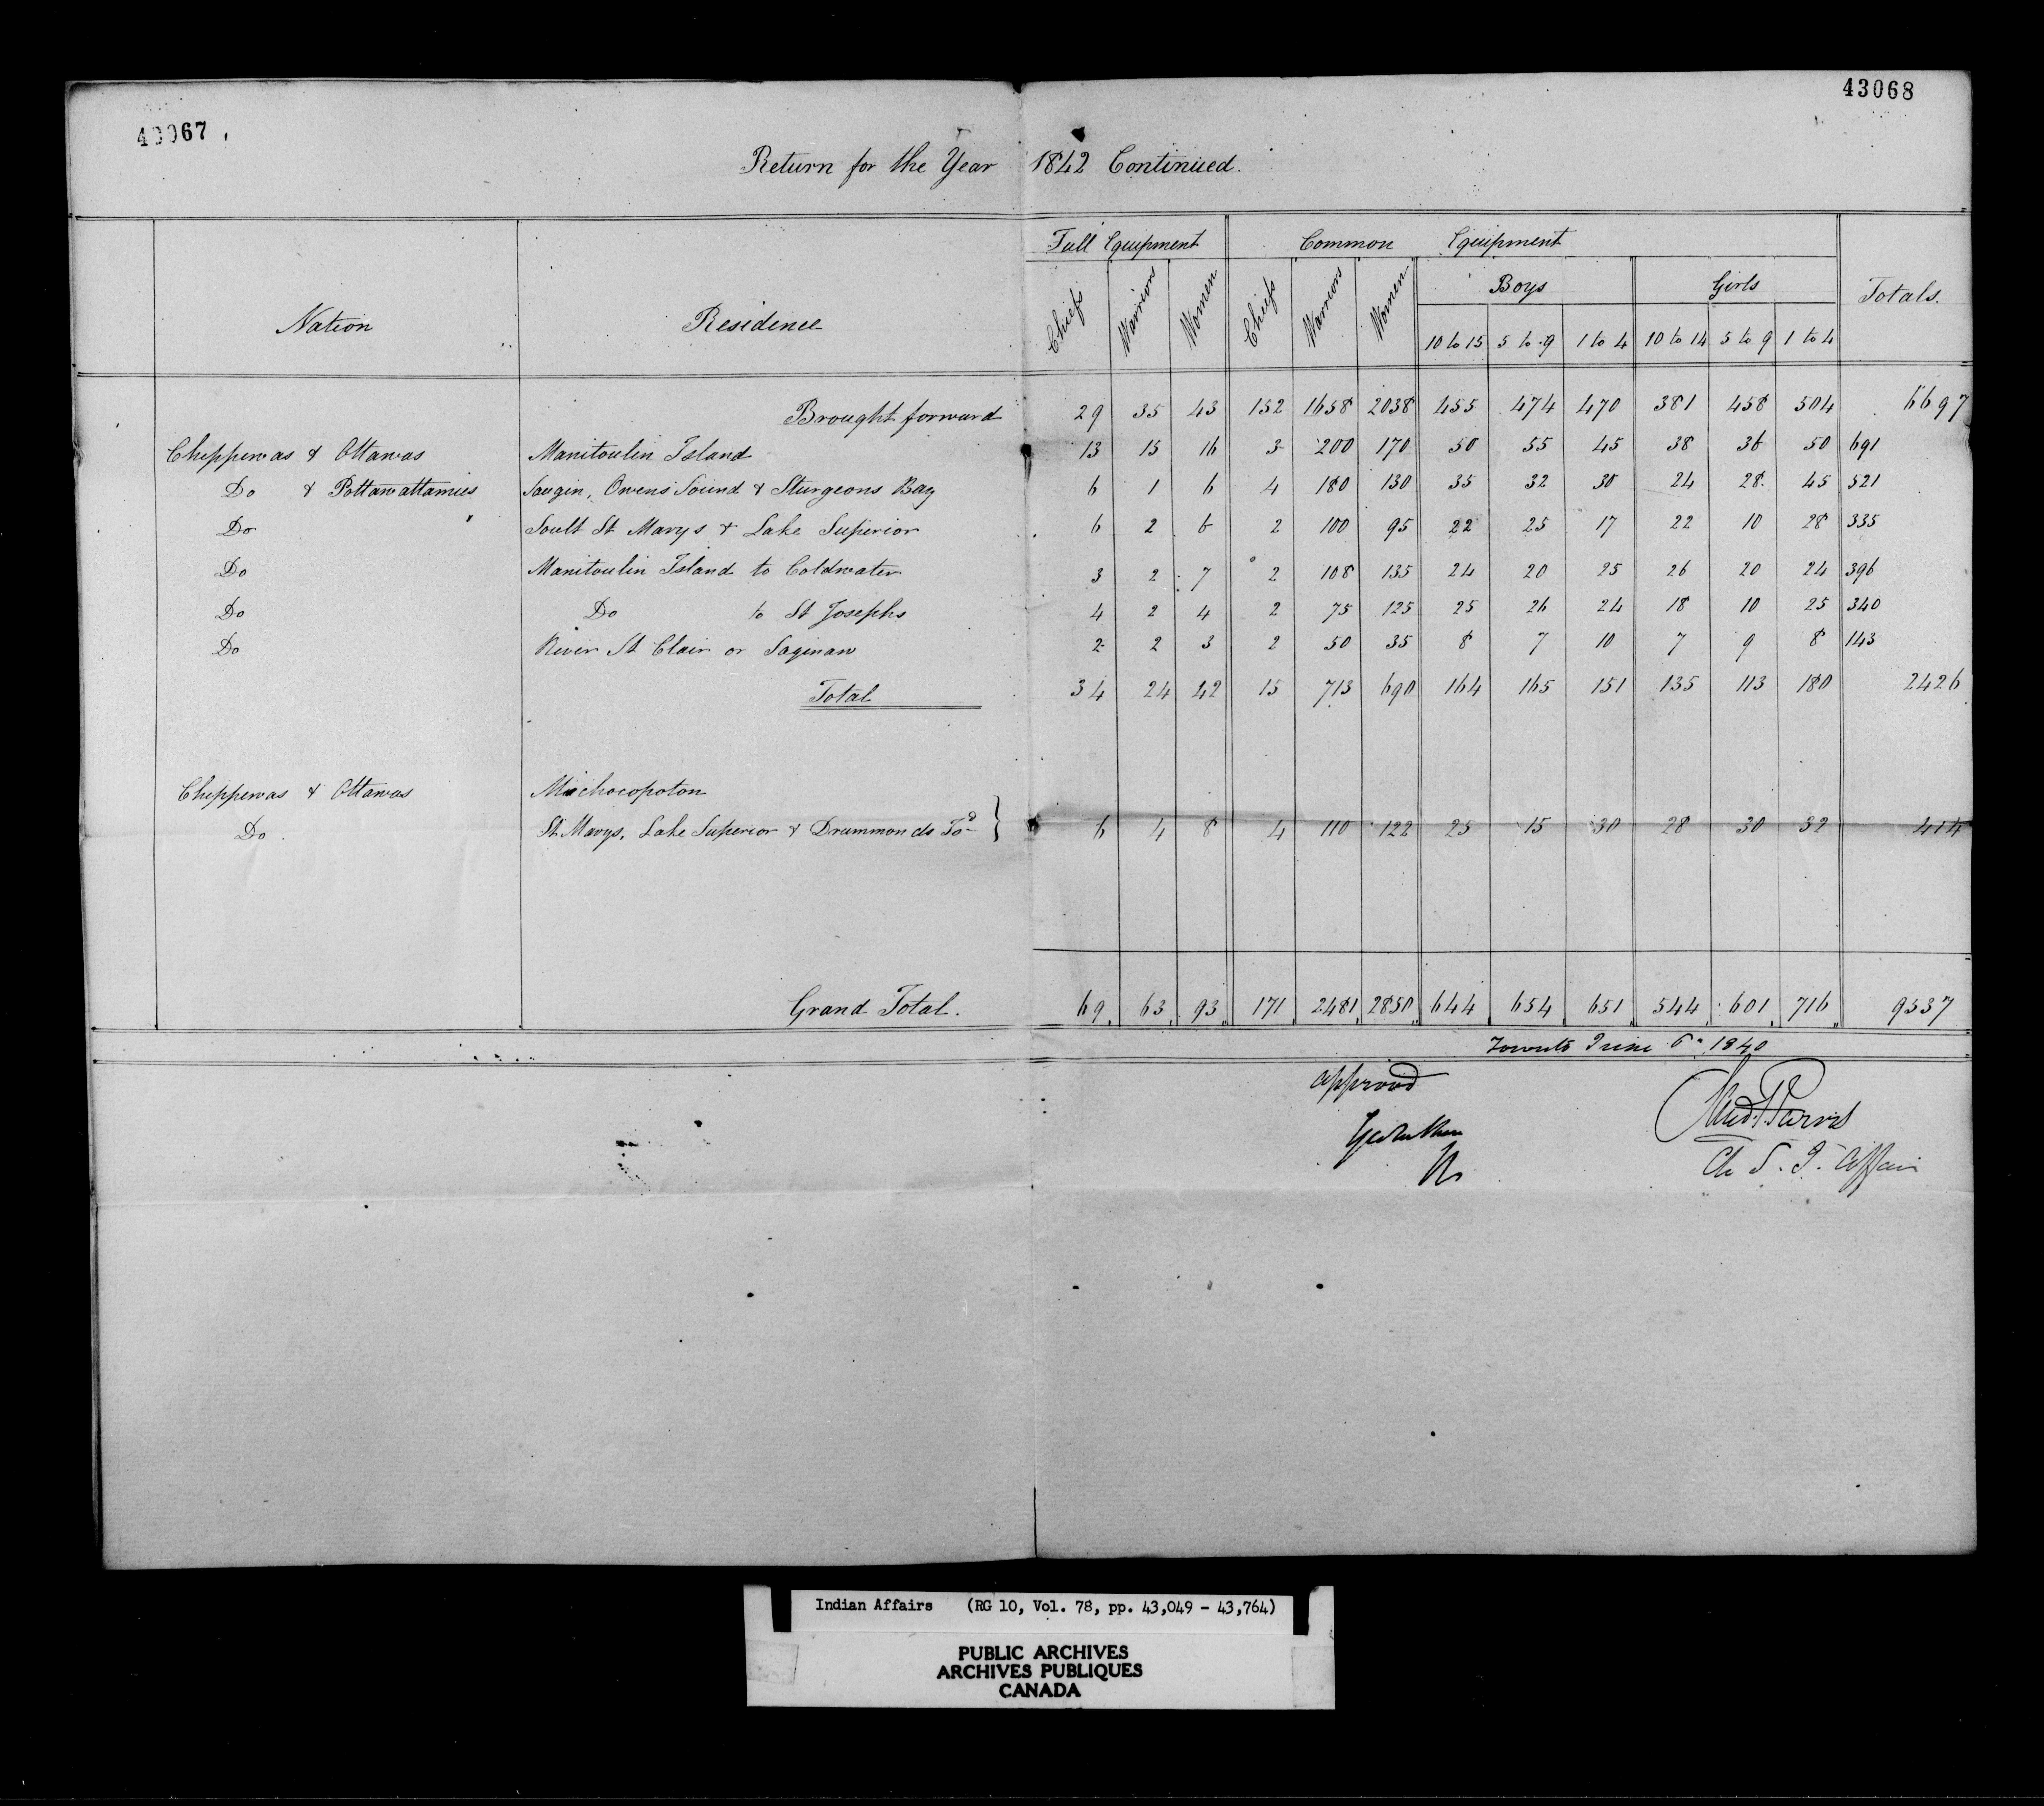 43067
43068
Return for the Year 1842 Continued.
Full Equipment Common Equipment
Nation Residence Chiefs Warriors Women Chiefs Warriors Women Boys Girls Totals.
10 to 15 5 to 9 1 to 4 10 to 14 5 to 9 1 to 4
Brought forward 29 35 43 152 1658 2038 455 474 470 381 458 504 6697
Chippewas & Ottawas Manitoulin Island 13 15 16 3 200 170 50 55 45 38 36 50 691
Do & Pottawattamies Saugin, Owens Sound & Sturgeons Bay 6 1 6 4 180 130 35 32 30 24 28 45 521
Do Soult St Marys & Lake Superior 6 2 6 2 100 95 22 25 17 22 10 28 335
Do Manitoulin Island to Coldwater 3 2 7 2 108 135 24 20 25 26 20 24 396
Do Do to St Josephs 4 2 4 2 75 125 25 26 24 18 10 25 340
Do River St Clair or Saginaw 2 2 3 2 50 35 8 7 10 7 9 8 143
Total 34 24 42 15 713 690 164 165 151 135 113 180 2426
Chippewas & Ottawas Michocopoton
Do St Marys, Lake Superior & Drummonds Isd } 6 4 8 4 110 122 25 15 30 28 30 32 414
Grand Total. 69 63 93 171 2481 2850 644 654 651 544 601 716 9537
Toronto June 6th 1840
approved
C. S. I. Affairs
Indian Affairs (RG 10, Vol. 78, pp. 43,049 - 43,764)
PUBLIC ARCHIVES
ARCHIVES PUBLIQUES
CANADA